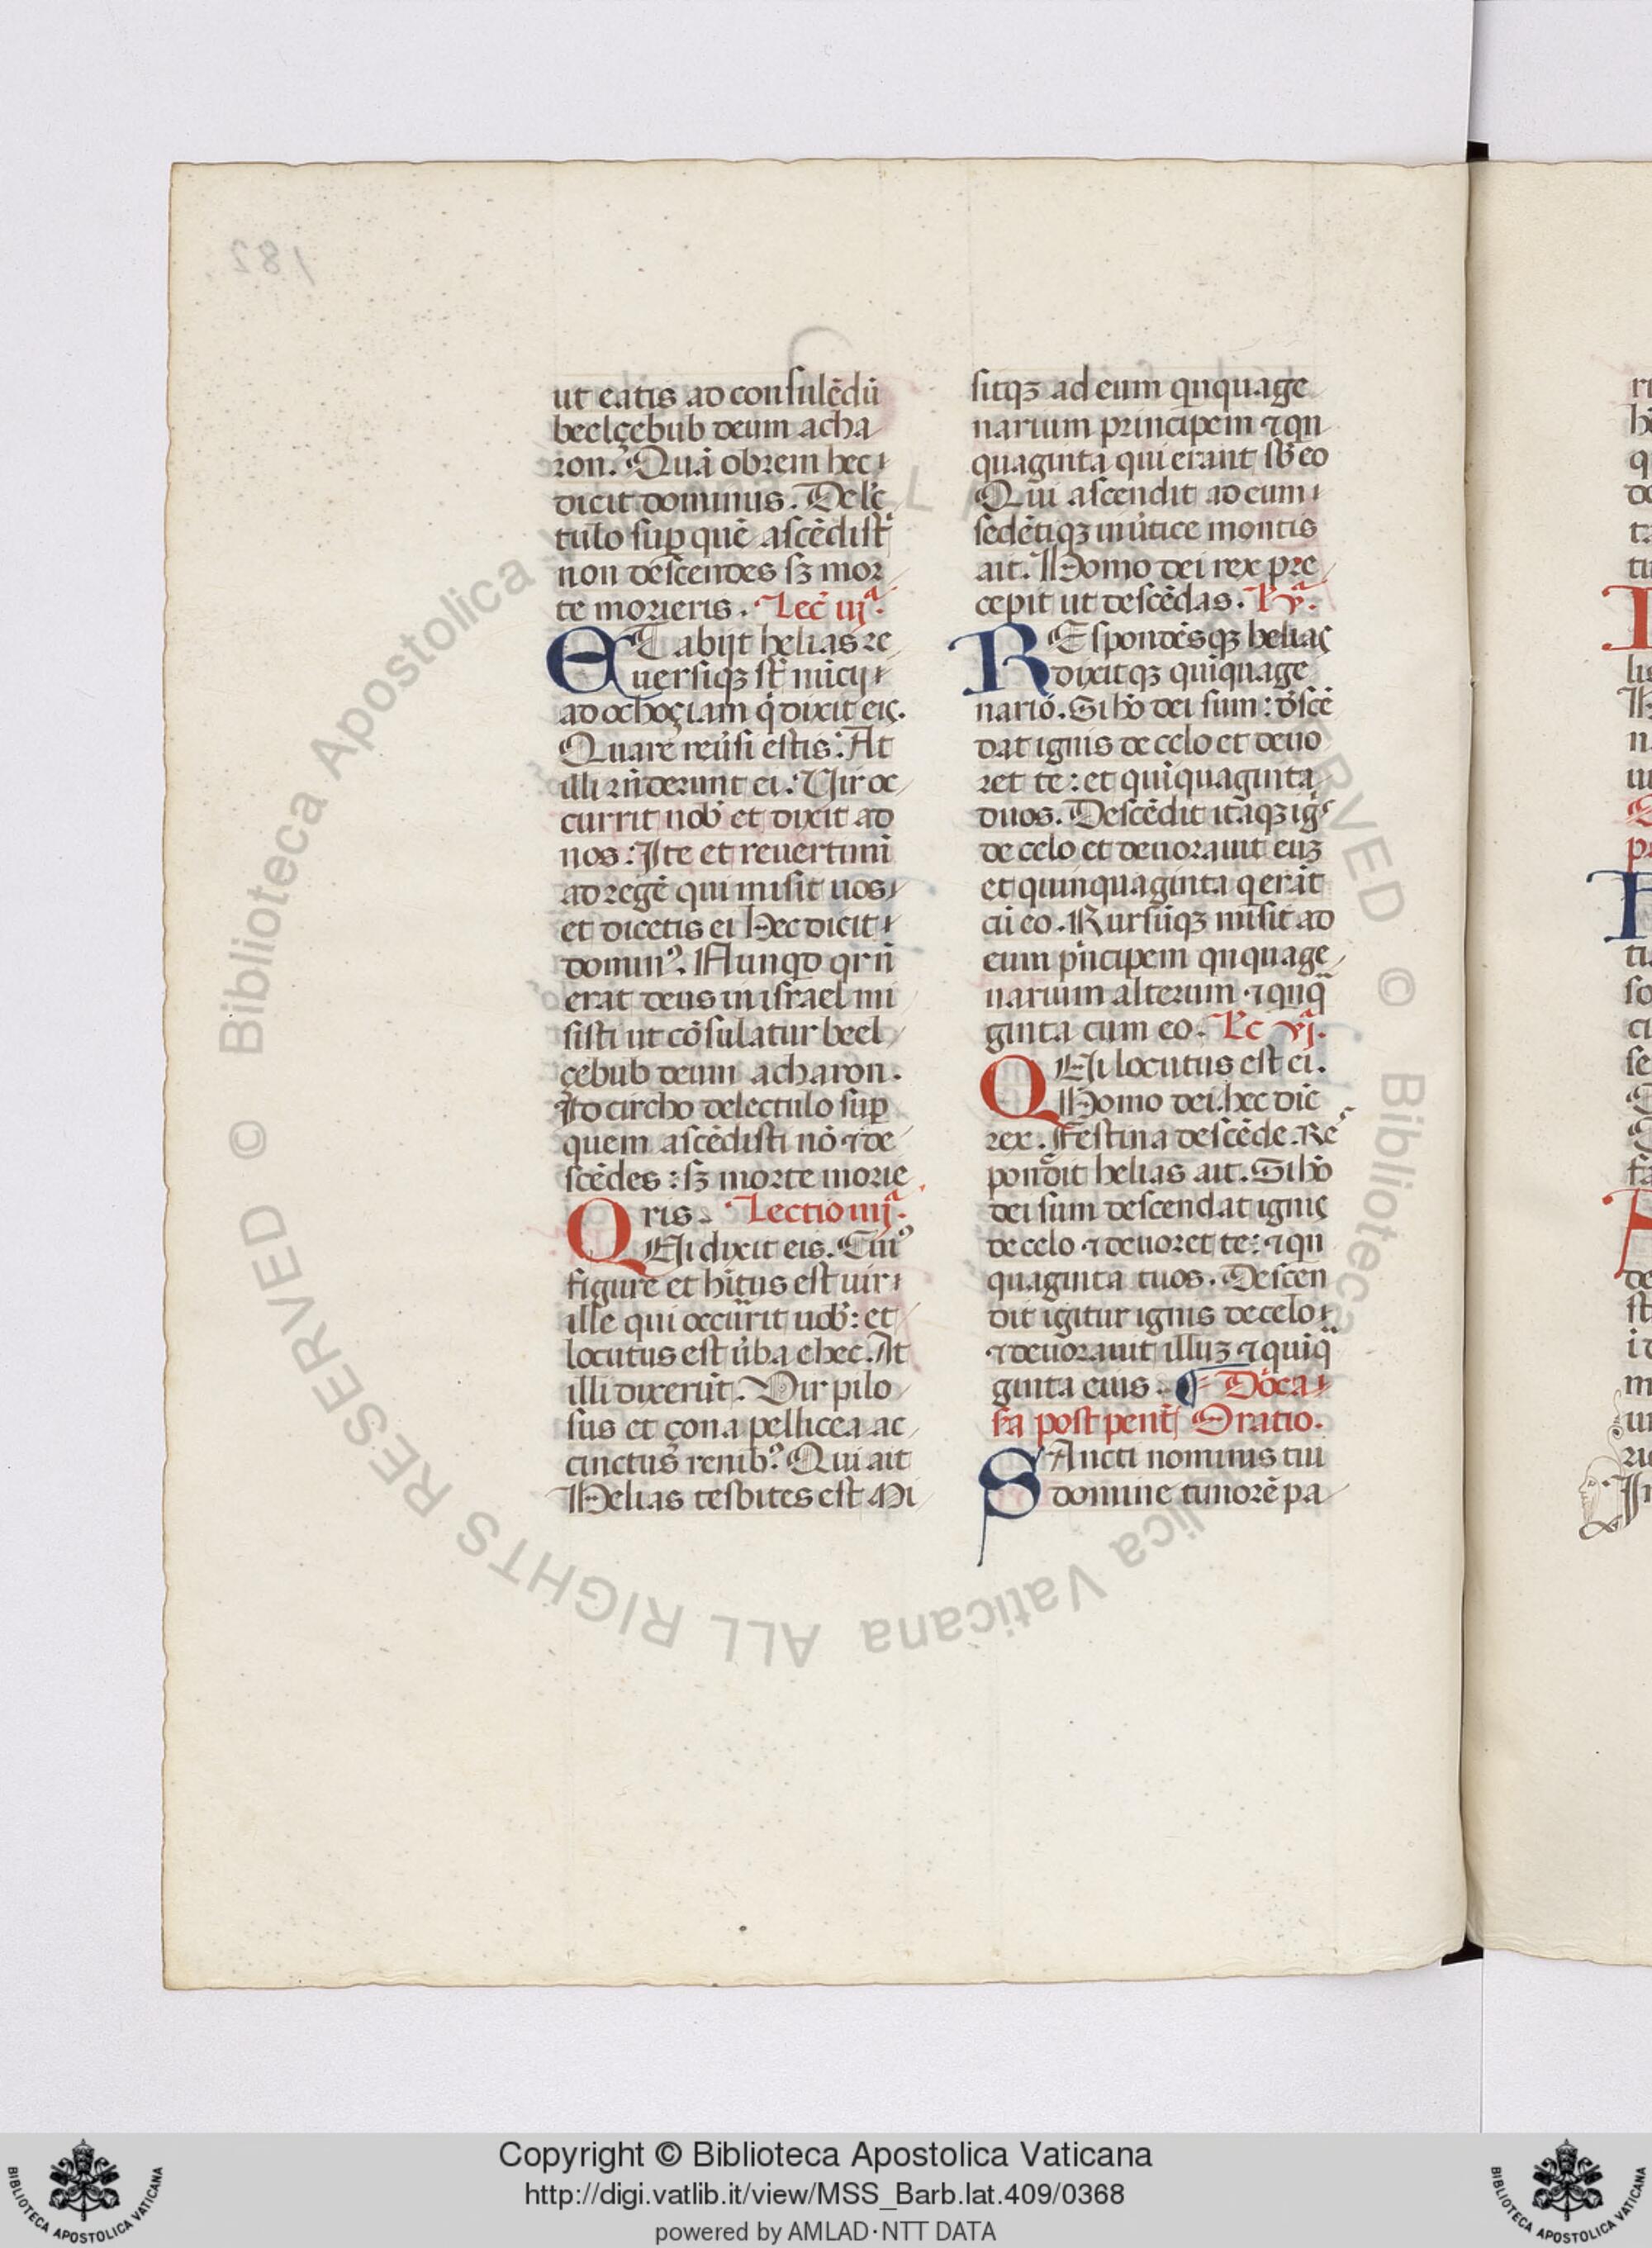 ut eatis ad consulēdū
beelçebub deum acha
ron. Quā obrem hec
dicit dominus. De lc̄
tulo sup̱ quē ascēdist
non descendes sꝫ mor
te morieris. Lec̄ iijᵃ.
ET abijt helias re
uersiqꝫ st̄ nūcij
ad ochoçiam q̇ dixit eis.
Quare reūsi estis: At
illi rn̄derunt ei: Uir oc
currit nob̄ et dixit ad
nos: Ite et reuertimī
ad regē qui misit uos
et dicetis ei Hec dicit
domin⁹. Nunqd qr n̄
erat deus in israel mi
sisti ut cōsulatur beel
çebub deum acharon.
Idcircho de lectulo sup̱
quem ascēdisti nō ⁊ de
scēdes: sꝫ morte morie
ris. Lectio iiijᵃ.
QUi dixit eis. Cui⁹
figure et hītus est uir
ille qui occurrit uob̄: et
locutus est ūba ehec. At
illi dixerūt. Vir pilo
sus et çona pellicea ac
cinctus renib⁹. Qui ait
Helias tesbites est Mi
sitqꝫ ad eum qnquage
narium principem ⁊ qn
quaginta qui erant sb̄ eo
Qui ascendit ad eum
sedētiqꝫ in ūtice montis
ait. Homo dei rex pre
cepit ut descēdas. L̄ vᵃ.
REspondēsqꝫ helias
dixitqꝫ quīquage
nario. Si hō dei sum: dēscē
dat ignis de celo et deuo
ret te: et quīquaginta
duos. Descēdit itaqꝫ ig⁹
de celo et deuorauit euꝫ
et quinquaginta q erāt
cū eo. Rursūqꝫ misit ad
eum pīncipem qnquage
narium alterum ⁊ qnqᵃ
ginta cum eo. Lc̄ vjᵃ.
QUi locutus est ei.
Homo dei. hec dic̄
rex. Festina descēde. Re
pondit helias ait. Si hō
dei sum descendat ignis
de celo ⁊ deuoret te: ⁊ qn
quaginta tuos. Descen
dit igitur ignis de celo
⁊ deuorauit illuꝫ ⁊ quīqᵃ
ginta eius. ¶ Dōca
ija post pent̄ Oratio.
SAncti nominis tui
domine timorē pa
Copyright © Biblioteca Apostolica Vaticana
http://digi.vatlib.it/view/MSS_Barb.lat.409/0368
powered by AMLAD·NTT DATA
BIBLIOTECA APOSTOLICA VATICANA
BIBLIOTECA APOSTOLICA VATICANA
© Biblioteca Apostolica Vaticana ALL RIGHTS RESERVED